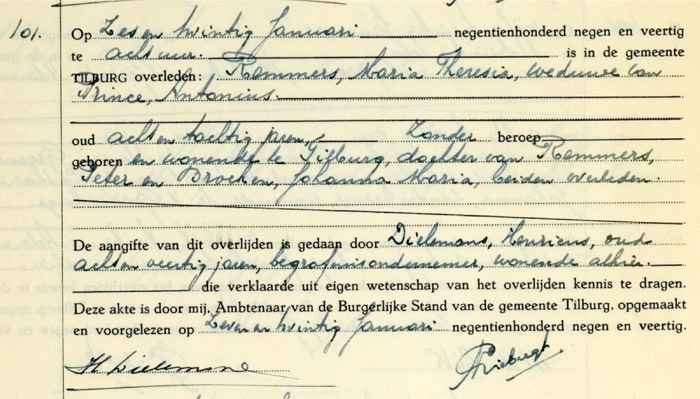 101.
Op Zes en twintig Januari negentienhonderd negen en veertig
te acht uur. is in de gemeente
TILBURG overleden: Remmers, Maria Theresia, weduwe van
Prince, Antonius.
oud acht en tachtig jaren, Zonder beroep
geboren en wonende te Tilburg, dochter van Remmers,
Peter en Broeken, Johanna Maria, beiden overleden.
De aangifte van dit overlijden is gedaan door Dielemans, Henricus, oud
acht en veertig jaren, begrafenisondernemer, wonende alhier.
die verklaarde uit eigen wetenschap van het overlijden kennis te dragen.
Deze akte is door mij, Ambtenaar van de Burgerlijke Stand van de gemeente Tilburg, opgemaakt
en voorgelezen op Zeven en twintig Januari negentienhonderd negen en veertig.
H Dielemans